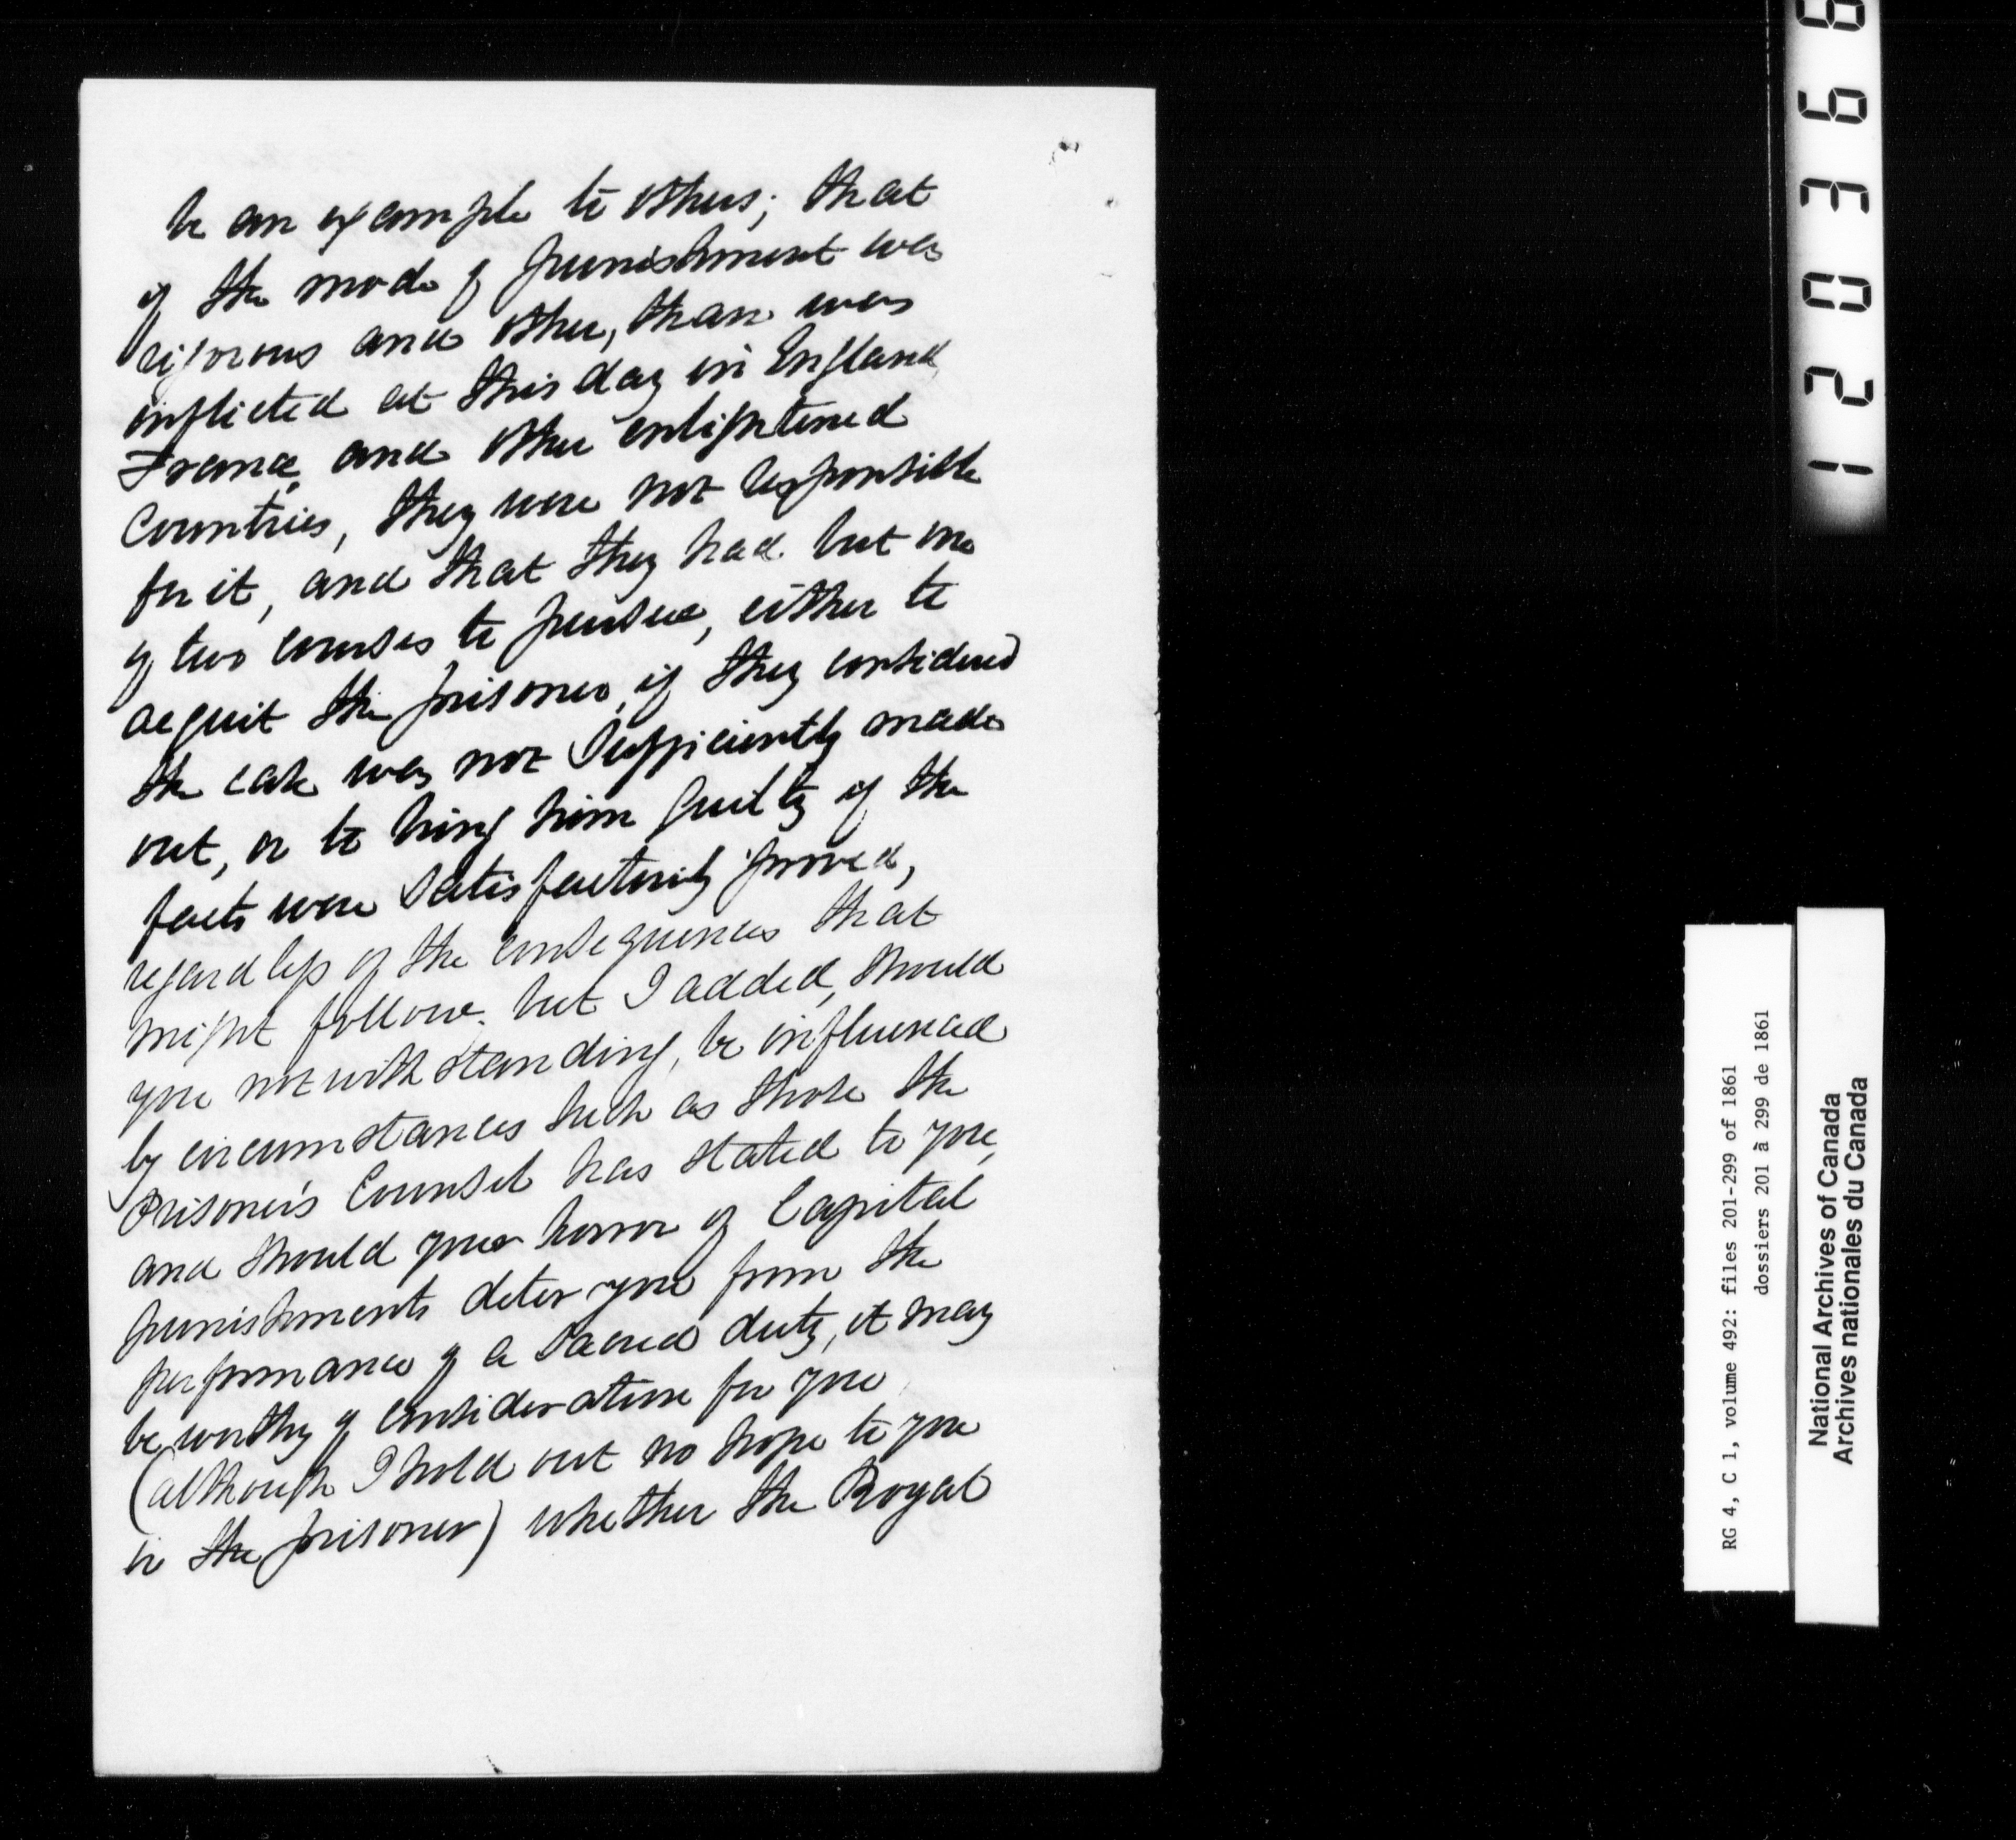 be an example to others; that
if the mode of punishment was
rigorous and other, than was
inflicted at this day in England,
France, and other enlightened
Countries, they were not responsible
for it, and that they had but one
of two courses to pursue, either to
acquit the prisoner, if they considered
the case was not sufficiently made
out, or to bring him guilty if the
facts were satisfactorily proved,
regardless of the consequences that
might follow. but I added, should
you notwithstanding, be influenced
by circumstances such as those the
Prisoner's Counsel has stated to you,
and should your horror of Capital
punishments deter you from the
performance of a sacred duty, it may
be worthy of consideration for you
(although I hold out no hope to you
or the prisoner) whether the Royal
RG 4, C 1, volume 492: files 201-299 of 1861
dossiers 201 à 299 de 1861
National Archives of Canada
Archives nationales du Canada